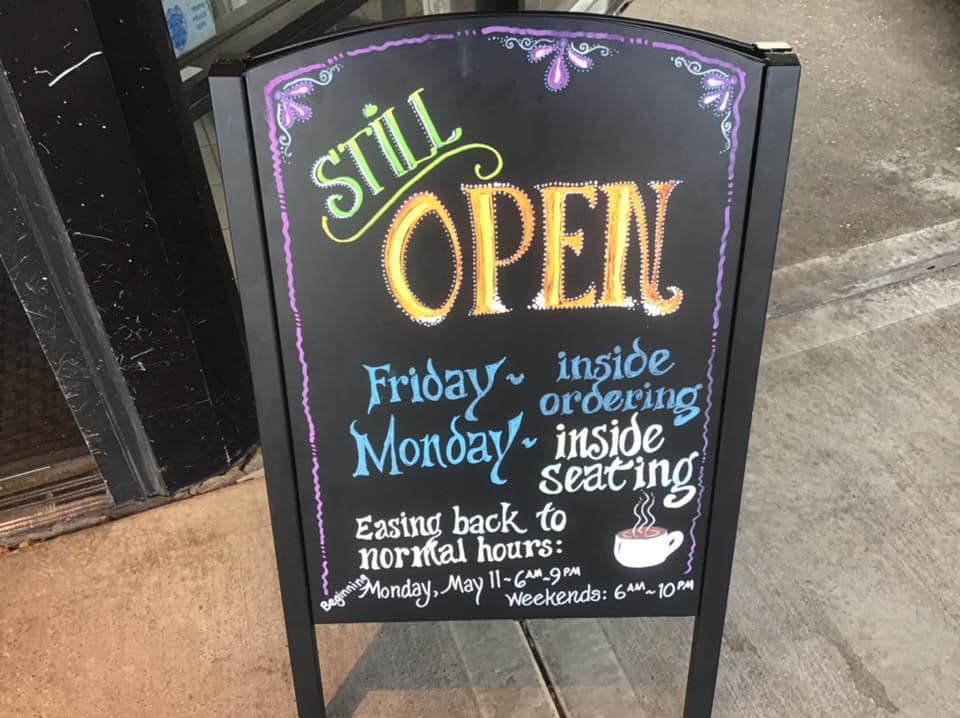 STILL
OPEN
Friday ~ inside
ordering
Monday ~ inside
seating
Easing back to
normal hours:
Beginning Monday, May 11 ~ 6AM ~ 9PM
Weekends: 6AM ~ 10PM